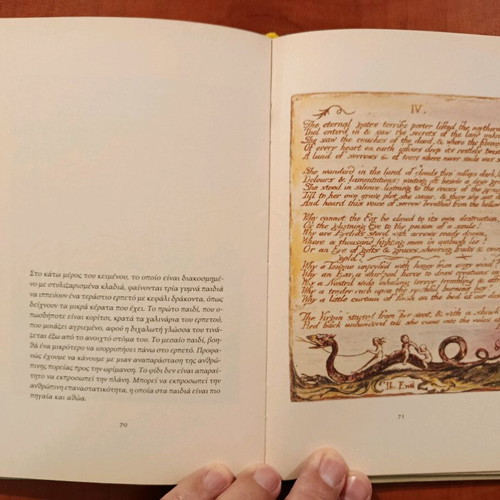 Στο κάτω μέρος του κειμένου, το οποίο είναι διακοσμημέ-
νο με στυλιζαρισμένα κλαδιά, φαίνονται τρία γυμνά παιδιά
να ιππεύουν ένα τεράστιο ερπετό με κεφάλι δράκοντα, όπως
δείχνουν τα μικρά κέρατα που έχει. Το πρώτο παιδί, που ο-
πωσδήποτε είναι κορίτσι, κρατά τα χαλινάρια του ερπετού,
που μοιάζει αγριεμένο, αφού η διχαλωτή γλώσσα του τινά-
ζεται έξω από το ανοιχτό στόμα του. Το μεσαίο παιδί, βοη-
θά ένα μικρότερο να ισορροπήσει πάνω στο ερπετό. Προφα-
νώς έχουμε να κάνουμε με μιαν αναπαράσταση της ανθρώ-
πινης πορείας προς την ωρίμανση. Το φίδι δεν είναι απαραί-
τητο να εκπροσωπεί την πλάνη. Μπορεί να εκπροσωπεί την
ανθρώπινη επαναστατικότητα, η οποία στα παιδιά είναι πιο
πηγαία και αθώα.
70
IV.
The eternal gates terrific porter lifted the northern
She enter'd in & saw the secrets of the land
She saw the couches of the dead, & where the
Of every heart on earth infixes deep its restless
A land of sorrows & of tears where never smile was
She wandered in the land of clouds thro' valleys dark,
Dolours & lamentations: waiting oft beside a
She stood in silence, listning to the voices of the
Till to her own grave plot she came, & there she sat
And heard this voice of sorrow breathed from the hollow
Why cannot the Ear be closed to its own destruction
Or the glistning Eye to the poison of a smile:
Why are Eyelids stord with arrows ready drawn,
Where a thousand fighting men in ambush lie:
Or an Eye of gifts & graces, show'ring fruits &
gold:
Why a Tongue impress'd with honey from every wind:
Why an Ear, a whirlpool fierce to draw creations in:
Why a Nostril wide inhaling terror trembling &
Why a tender curb upon the youthful burning boy:
Why a little curtain of flesh on the bed of our
The Virgin started from her seat, & with a shriek
Fled back unhinderd till she came into the vales
The End
71